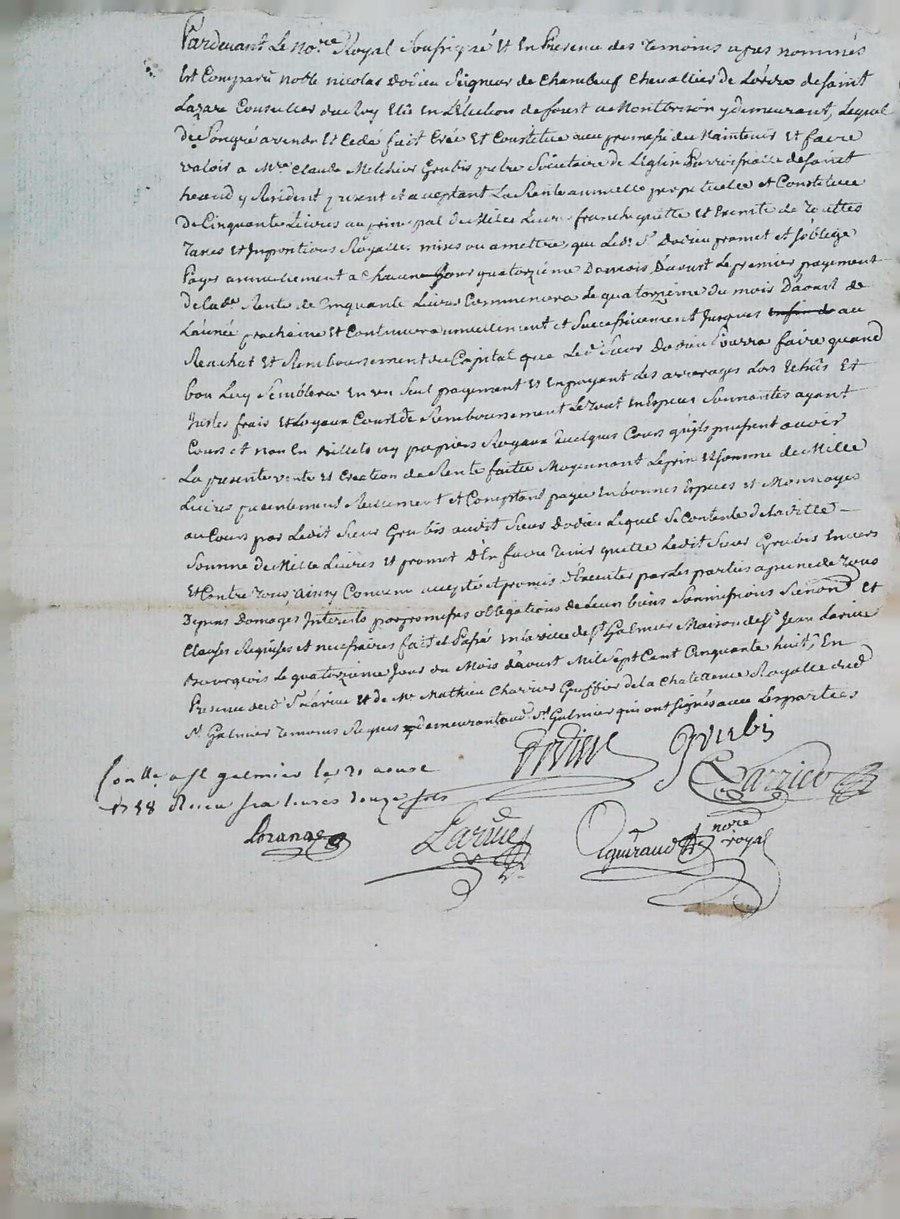 Pardevant Le no.re Royal Soussigné Et En Presence des Temoins apres nommés
Est Comparu noble nicolas Dodieu Seigneur de Chambeuf Chevallier de Lordre de saint
Lazare Conseiller du Roy Elû en L'Election de forest de Montbrison y demeurant, Lequel
de Son gré a vendu Et Cedé fait Créé Et Constitue avec promesse de Maintenir Et faire
valoir a M.re Claude Melchior Grubis pretre Societaire de Leglise Parroissialle de saint
heand y Resident present et acceptant La Rente annuelle perpetuelle et Constituee
de Cinquante Livres au principal de Mille Livres franche quitte Et Exemte de Touttes
Taxes Et Impositions Royalles mises ou a mettre, que Led. S.r Dodieu promet et s'oblige
Payer annuellement a Chacun Jour quatorzieme Du mois D'aoust Le premier payement
de lad.e Rente de Cinquante Livres Commencera Le quatorzieme du mois D'aoust de
L'année prochaine Et Continuera annuellement et Successivement Jusques au
Reachat Et Remboursement du Capital que Led. Sieur Dodieu Pourra faire quand
bon Luy Semblera En un Seul payement Et En payant Les arrerages Lors Echûs Et
Justes frais Et Loyaux Couts de Remboursement Le Tout En Especes Sonnantes ayant
Cours et non En Billets ny papiers Royaux Quelques Cours qu'ils puissent avoir
La presente vente Et Creation de Rente faitte Moyennant Le prix Et somme de Mille
Livres presentement Reellement et Comptant payée En bonnes Especes et Monnoyes
au Cours par Ledit Sieur Grubis audit Sieur Dodieu Lequel Se Contente de laditte
Somme de Mille Livres Et promet D'En faire Tenir quitte Ledit Sieur Grubis Envers
Et Contre Tous, ainsy Convenu accepté et promis d'Executer par Les parties a peine de Tous
Depens Domages Interests par promesses obligations de Leurs biens Soumissions Renon.ons Et
Clauses Requises et necessaires fait et Passé En la ville de S.t Galmier Maison de S.r Jean Larue
Bourgeois Le quatorzieme Jour du Mois d'aoust Mil Sept Cent Cinquante huit, En
Presence dud. S.r Larue Et de M.e Mathieu Charrier Greffier de la Chatelenie Royalle dud.
S.t Galmier Temoins Requis demeurant aud. S.t Galmier qui ont Signés avec Les parties
Dodieu Grubis
Con.lle a S.t galmier le 21 aoust
1758 Recu six livres douze sols
Loranges Larue nore royal